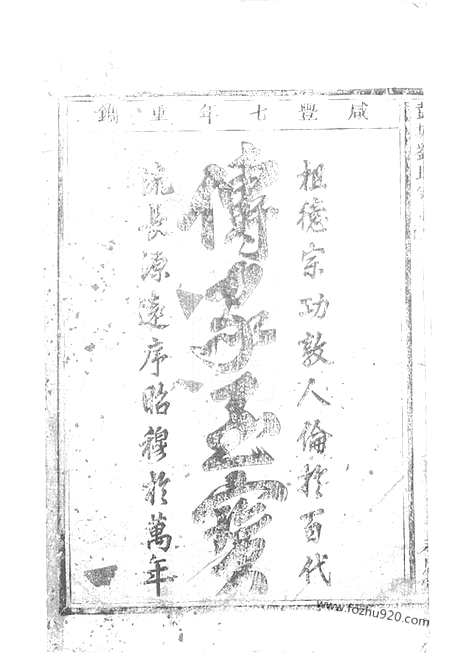 咸豐七年重鐫
祖德宗功敦人倫於百代
傳家至寶
流長源遠序昭穆於萬年
www.fozhu920.com